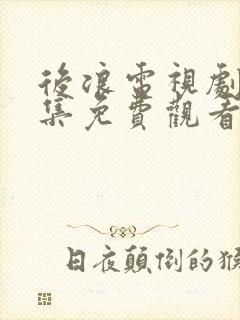 後浪電視劇
集免費觀看
日夜顛倒的猴